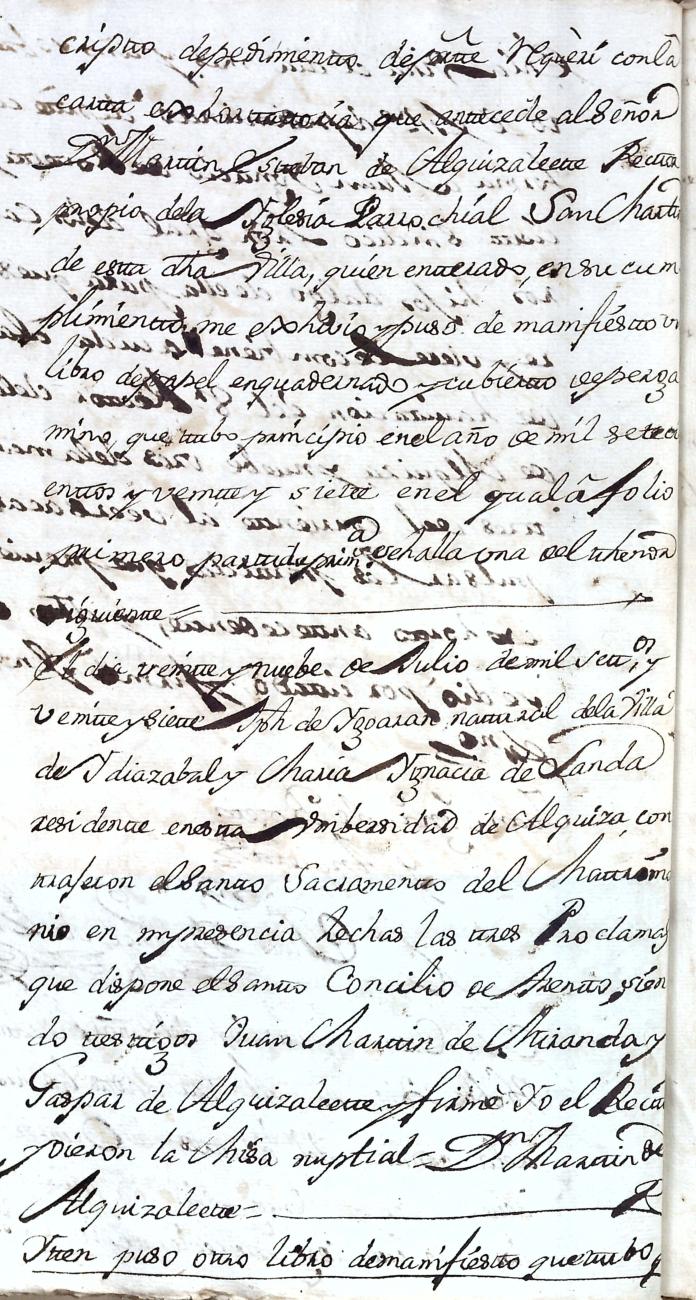 cripto depedimiento departe Requerí conla
carta exhortatoria que antecede al Señor
Dn Martin Esteban de Alquizaleete Rector
propio dela Iglesia Parrochial San Martin
de esta dha Villa, quien enterado, en su cum
plimiento, me exhivio y puso de manifiesto un
libro depapel enquadernado y cubierto de perga
mino, que tubo principio enel año de mil setec
entos y veinte y siete en el qual â folio
primero partida prima sehalla una del thenor
siguiente =
El dia veinte y nuebe de Julio de mil settos y
veinte y siete Jph de Ygoaran natural dela Villa
de Ydiazabal y Maria Ygnacia de Landa
residente enesta Unibersidad de Alquiza con
trajeron el Santo Sacramento del Matrimo
nio en mi presencia hechas las tres Proclamas
que dispone el Santo Concilio de Trento sien
do testigos Juan Martin de Miranda y
Gaspar de Alquizaleete y firmé Yo el Rector
y dieron la Misa nuptial = Dn Martin de
Alquizaleete =
Yten puso otro libro demanifiesto que tubo